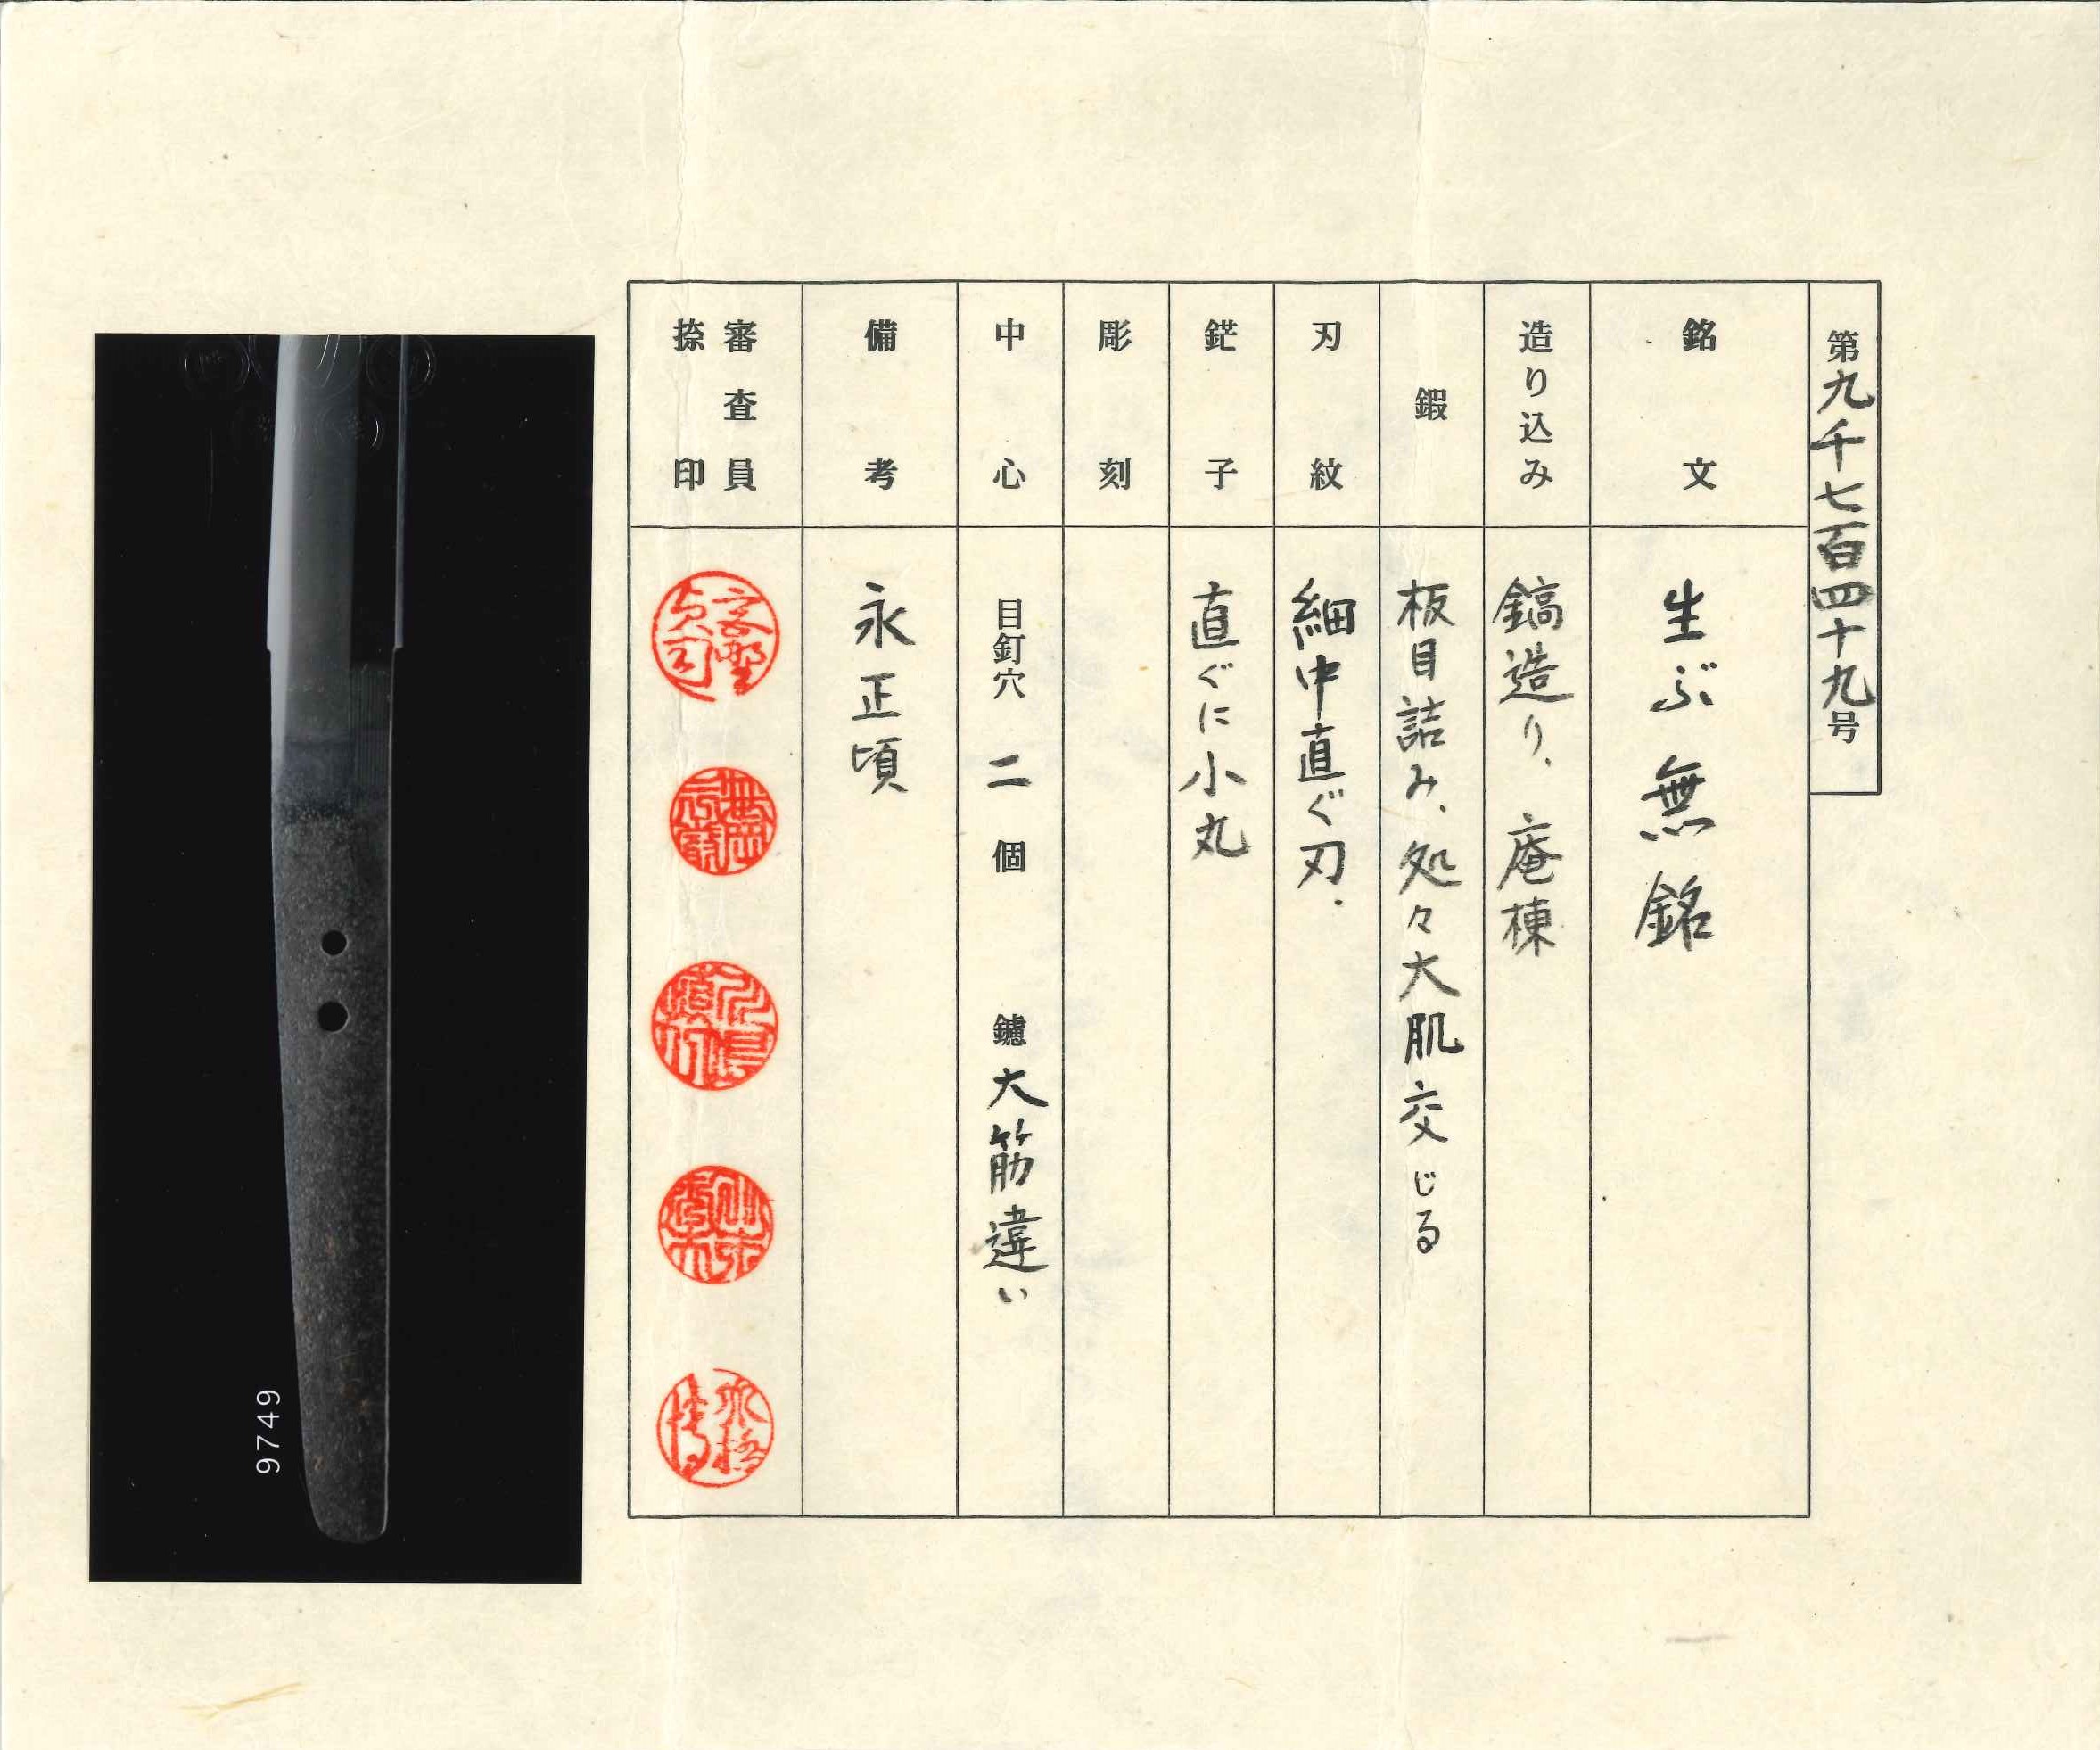 第九千七百四十九号
銘文
生ぶ無銘
造り込み
鎬造り、庵棟
鍜
板目詰み、処々大肌交じる
刃紋
細中直ぐ刃.
鋩子
直ぐに小丸
彫刻
中心
目釘穴 二 個 鑢 大筋違い
備考
永正頃
審査員
捺印
9749